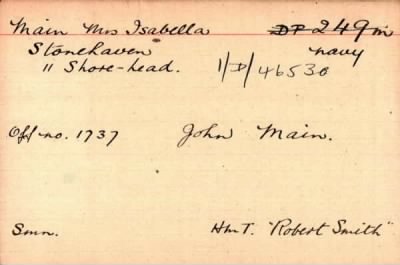 Main Mrs Isabella DP 249m
Stonehaven navy
11 Shore-head. 1/D/46530
Off no. 1737 John Main.
Smn. HMT. "Robert Smith"